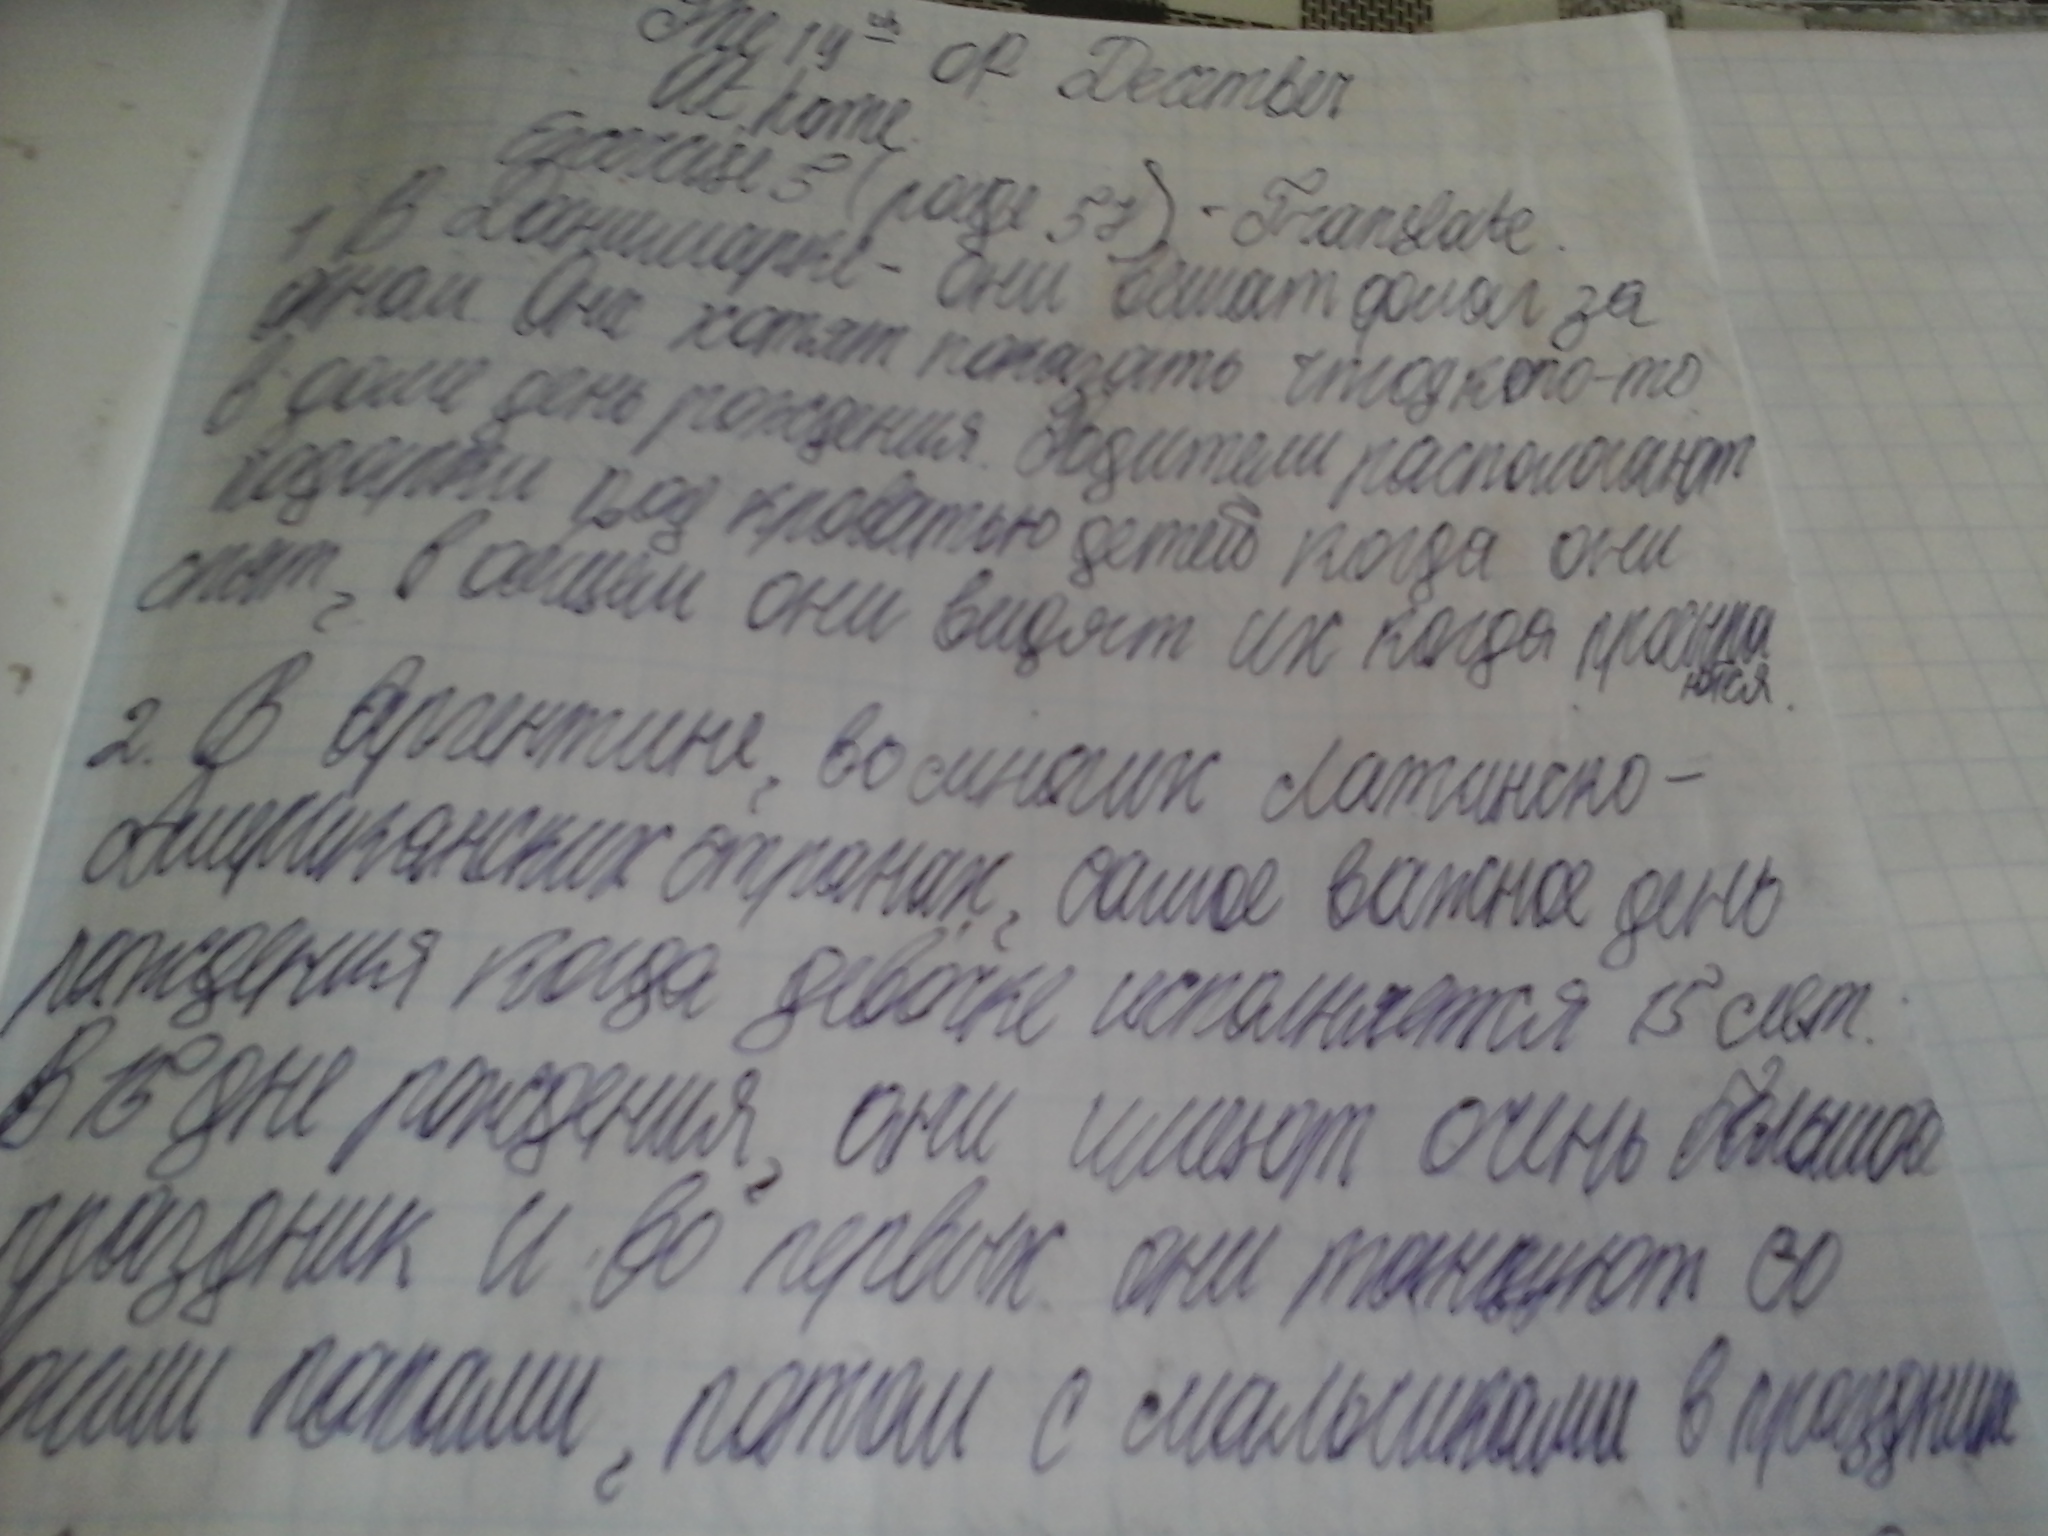 The 14th of December
At home.
Exercise 5 (page 57) - Translate.
1. В Даниимарке - они вешат флаг за
окном Они хотят показать что у кого-то
в доме день рождения. Родители распологают
подарки под кроватью детей когда они
спят, в общем они видят их когда просыпа
ются.
2. В Аргентине, во многих Латинско-
Американских странах, самое важное день
рождения когда девочке исполняется 15 лет.
В 15 дне рождения, они имеют очень большой
праздник и во первых они танцуют со
папами, потом с мальчиками в праздник